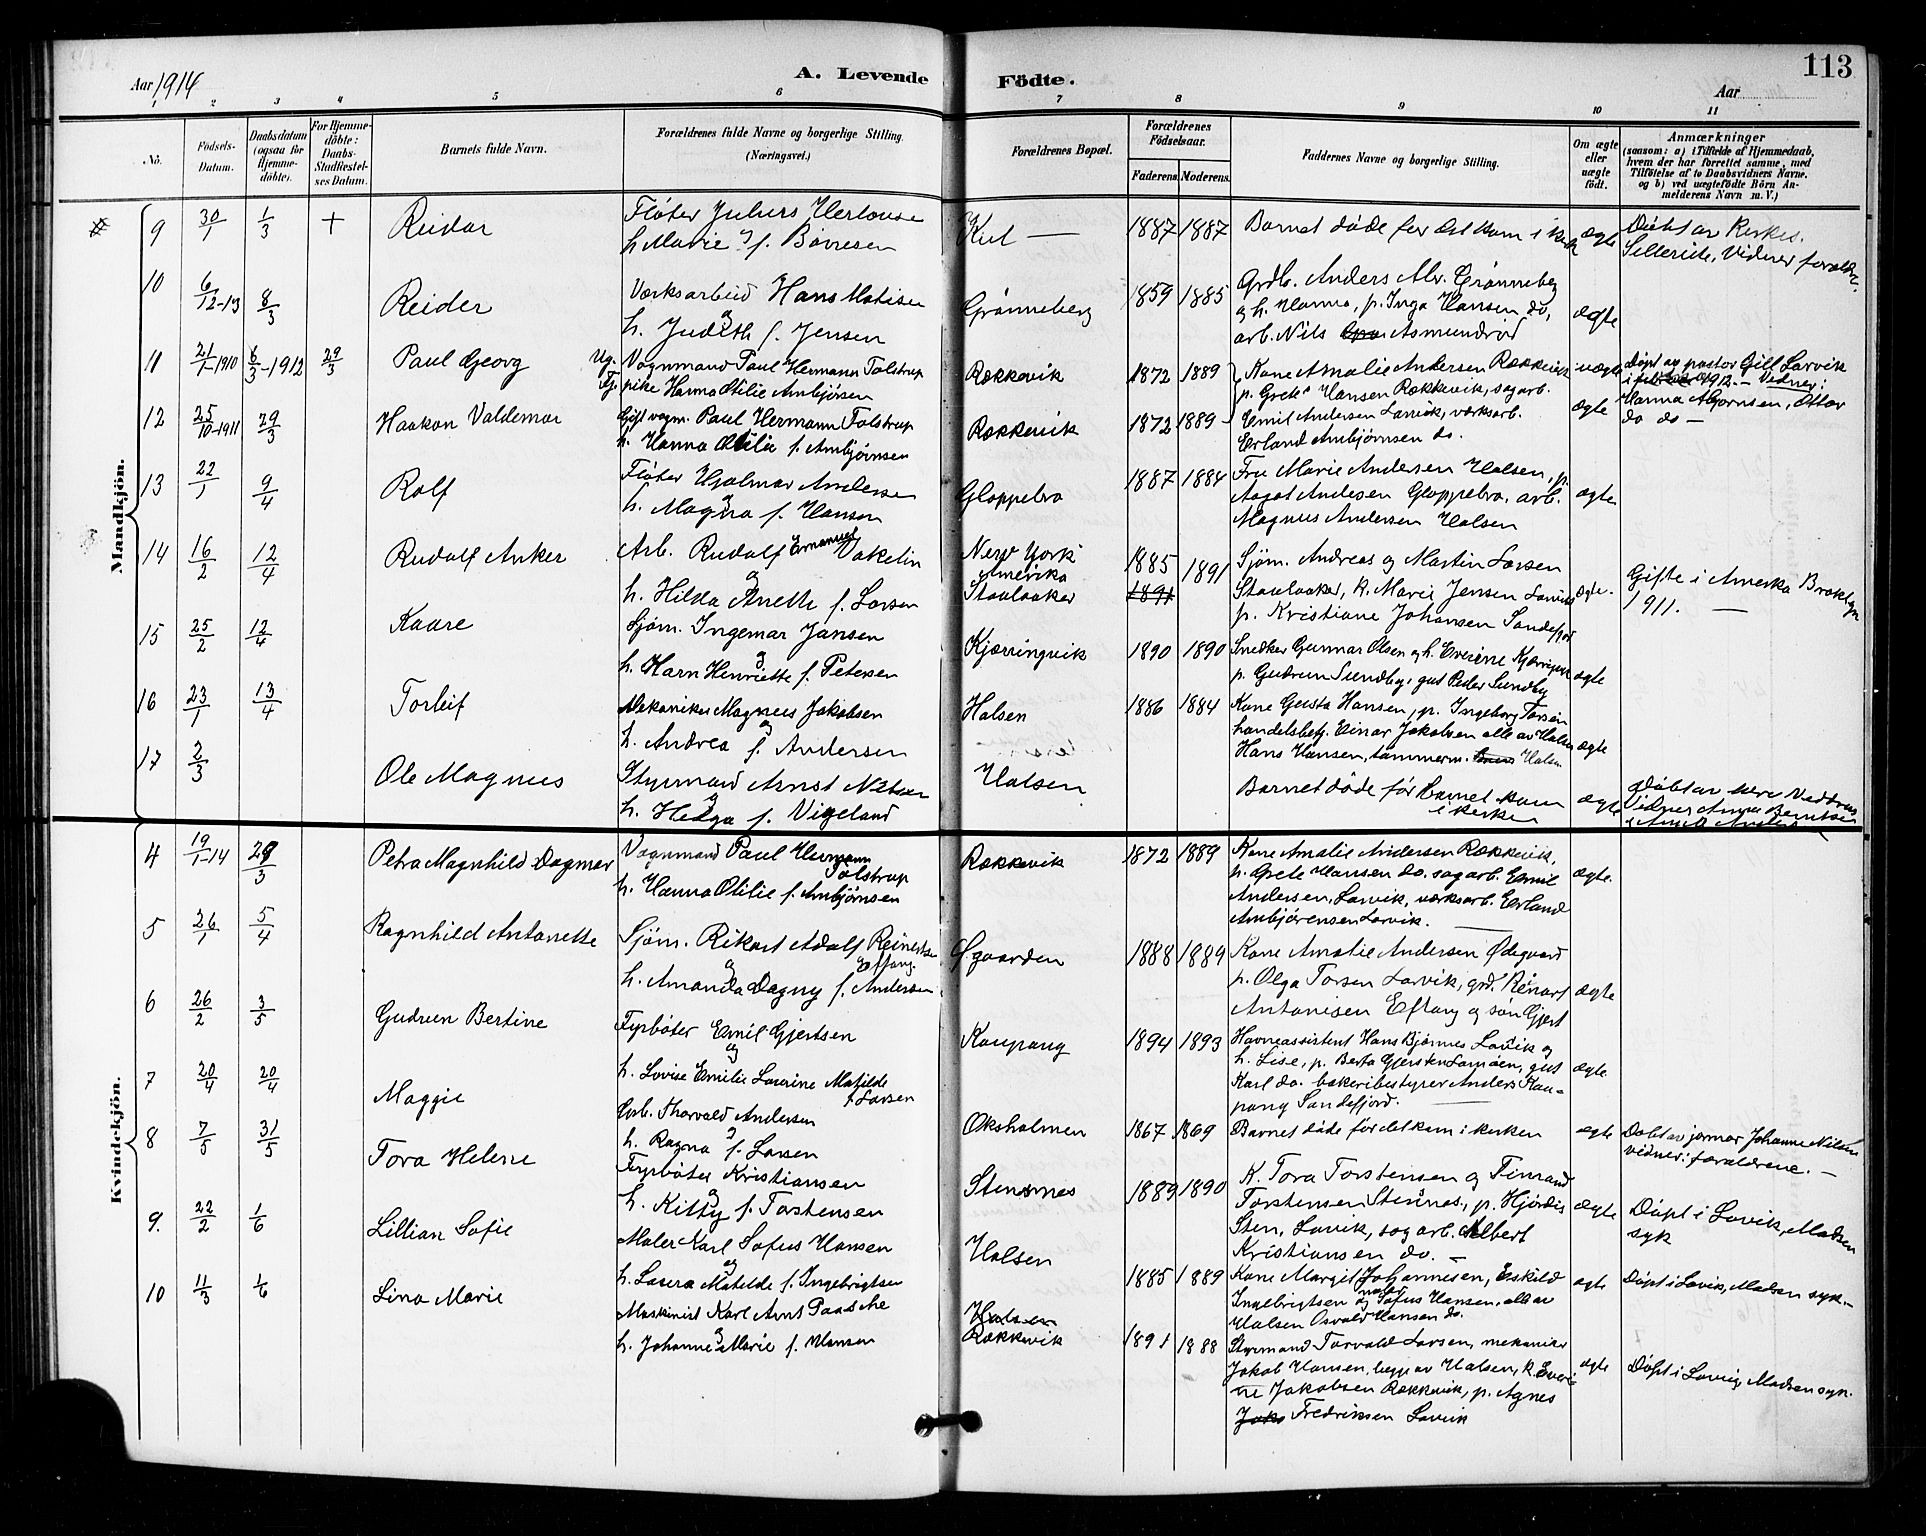 A. Levende Födte.
113
Aar 1914
Aar
1 2 3 4 5 6 7 8 9 10 11
No.
Födsels-Datum.
Daabsdatum (ogsaa for Hjemme-döbte).
For Hjemme-döbte: Daabs-Stadfæstel-ses Datum.
Barnets fulde Navn.
Forældrenes fulde Navne og borgerlige Stilling. (Næringsvei.)
Forældrenes Bopæl.
Forældrenes Födselsaar.
Faderens. Moderens.
Faddernes Navne og borgerlige Stilling.
Om ægte eller uægte födt.
Anmærkninger
(saasom: a) i Tilfælde af Hjemmedaab,
hvem der har forrettet samme, med
Tilföielse af to Daabsvidners Navne,
og b) ved uægtefödte Börn An-
melderens Navn m. V.)
Mandkjön.
9 30/1 1/3 + Reidar
Fløter Julius
h. Marie f. Børresen
1887 1887 Barnet døde før det kom i
ægte
Døbt av
Vidner forældre
10 6/12-13 8/3 Reider
Værksarbeid Hans Matisen
og
h. Judith f. Jensen
Grønneberg 1859 1885
Grdb. Anders Alv. Grønneberg
og h. Hanna, p. Inga Hansen do,
arb. Nils Asmundrød
ægte
11 21/1-1910 6/3-1912 29/3 Paul Georg
Ug. Vognmand Paul Hermann Tolstrup
pike Hanna Otilie Ambjörsen
Rækkevik 1872 1889
Kone Amalie Andersen Rækkevik
p. Grete Hansen Rækkevik, sagarb.
uægte
Døpt av pastor Gill Larvik
1912. - Vidner:
12 25/10-1911 29/3 Haakon Valdemar
Gift vogm. Paul Hermann Tolstrup
h. Hanna Otilie f. Ambjørnsen
Rækkevik 1872 1889
Emil Andersen Larvik, værksarb.
Erland Ambjørnsen do.
ægte
do do -
13 22/1 9/4 Rolf
Fløter Hjalmar Andersen
og
h. Magna f. Hansen
Gloppebro 1887 1884
Fru Marie Andersen Halsen, p.
Aagot Andesen Gloppebro, arb.
Magnus Andersen Halsen
ægte
14 16/2 12/4 Rudolf Anker
Arb. Rudolf Emanuel Vakelin
og
h. Hilda Anette f. Larsen
New York
Amerika
Staulaaker
1885 1891
1891
Sjøm. Andreas og Martin Larsen
Staulaaker, K. Marie Jensen Larvik
p. Kristiane Johansen Sandefjord
ægte.
Gifte i Amerka Broklyn
1911. -
15 25/2 12/4 Kaare
Sjøm. Ingemar Jansen
og
h. Harn Henriette f. Petersen
Kjærringvik 1890 1890
Snedker Gunnar Olsen og h. Everine
p. Gudrun Sundby, gut Peder Sundby
ægte
16 23/1 13/4 Torleif
Mekaniker Magnus Jakobsen
og
h. Andrea f. Andersen
Halsen 1886 1884
Kone Gusta Hansen, p. Ingeborg
handelsbetj. Einar Jakobsen alle av Halsen
Hans Hansen, tømmerm. Halsen
ægte
17 2/3 Ole Magnus
Styrmand Arnst
og
h. Helga f. Vigeland
Halsen
Barnet døde før barnet kom
i kirken
ægte
Kvindekjön.
4 19/1-14 29/3 Petra Magnhild Dagmar
Vognmand Paul Hermann
Tolstrup
h. Hanna Otilie f. Ambjørnsen
Rækkevik 1872 1889
Kone Amalie Andersen Rækkevik,
p. Grete Hansen do. sagarb. Emil
Andersen, Larvik, værksarb. Erland
Ambjørensen Larvik.
ægte.
5 26/1 5/4 Ragnhild Antonette
Sjøm. Rikart Adolf Reinertsen
Eftang.
og
h. Amanda Dagny f. Andersen
Øgaarden 1888 1889
Kone Amalie Andersen Ødegaard
p. Olga Torsen Larvik, grd.
Antonisen Eftang og søn Gjert
ægte
6 26/2 3/5 Gudrun Bertine
Fyrbøter Emil Gjertsen
og
h. Lovise Emilie Laurine Matilde
f. Larsen
Kaupang 1894 1893
Havneassistent Hans Bjønnes Larvik og
h. Lise, p. Berta Gjertsen Lamøen, gut
Karl do. bakeribestyrer Anders Kau-
pang Sandefjord.
ægte
7 20/4 20/4 Maggie
Grb. Thorvald Andersen
og
h. Ragna f. Larsen
Oksholmen 1867 1869
Barnet døde før det kom i kirken
ægte
Døbt av jormor Johanne Nilsen
vidner: forældrene. -
8 7/5 31/5 Tora Helene
Fyrbøter Kristiansen
og
h. Kitty f. Torstensen
Stensnes 1889 1890
K. Tora Torstensen og Finrand
Torstensen Stensnes, p. Hjørdis
Sten, Larvik, sagarb. Albert
Kristiansen do. -
ægte
9. 22/2 1/6 Lillian Sofie
Maler Karl Sofus Hansen
og
h. Laura Matilde f. Ingebrigtsen
Halsen 1885 1889
Kone Margit Johannesen, Eskild
Ingebrigtsen og Sofus Hansen, alle av
Halsen Osvald Hansen do.
ægte
Døpt i Larvik, Madsen
syk
10 11/3 1/6 Lina Marie
Maskinist Karl Arnt Paasche
og
h. Johanne Marie f. Hansen
Halsen
Rækkevik
1891 1888
Styrmand Torvald Larsen, mekaniker
Jakob Hansen, begge av Halsen, K. Everi-
ne Jakobsen Rækkevik, p. Agnes
Fredriksen Larvik
ægte
Døpt i Larvik, Madsen syk.-
Døpt i Larvig, Madsen syk.